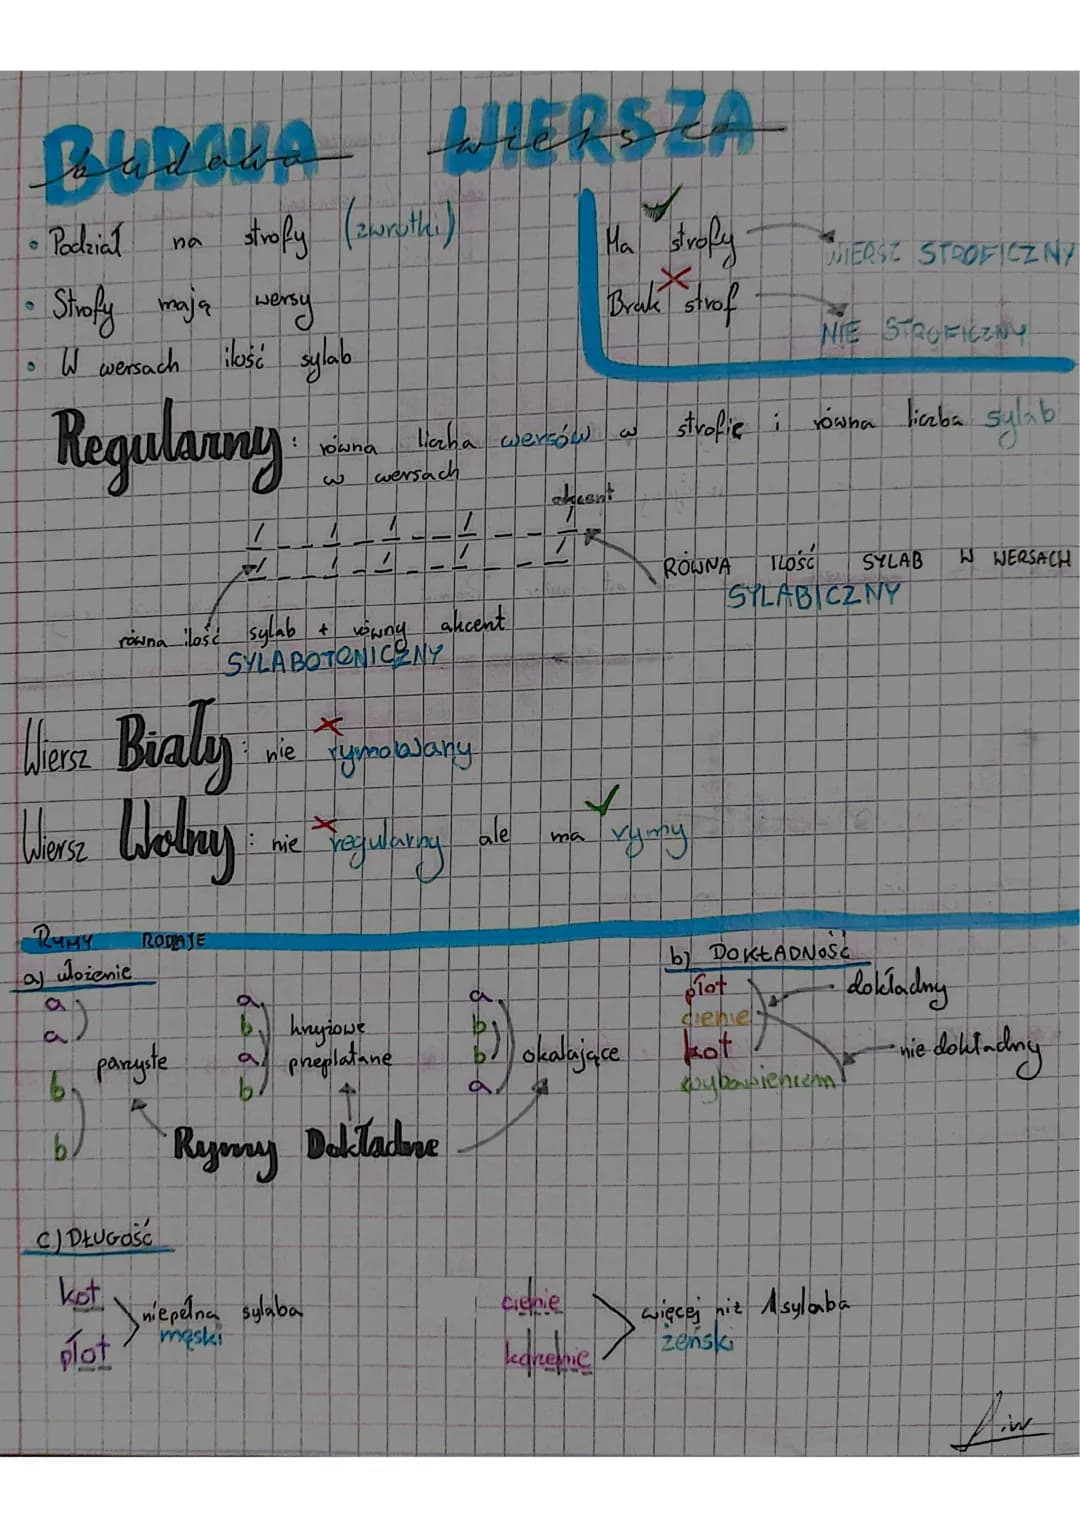 BUDOWA WIERSZA
budowa wiersza
• Podział na strofy (zwrotki)
• Strofy mają wersy
• W wersach ilość sylab
Ma strofy WIERSZ STROFICZNY
Brak strof NIE STROFICZNY
Regularny: równa liczba wersów w strofie i równa liczba sylab
w wersach
akcent
RÓWNA ILOŚĆ SYLAB W WERSACH
SYLABICZNY
równa ilość sylab + równy akcent
SYLABOTONICZNY
Wiersz Biały: nie rymowany
Wiersz Wolny: nie regularny ale ma rymy
RYMY RODZAJE
a) ułożenie
a
a
b
b
parzyste
a
b
a
b
krzyżowe
przeplatane
a
b
b
a
okalające
Rymy Dokładne
b) DOKŁADNOŚĆ
płot
cienie
kot
wybawieniem
dokładny
nie dokładny
c) DŁUGOŚĆ
kot
płot
niepełna sylaba
męski
cienie
więcej niż 1 sylaba
żeński